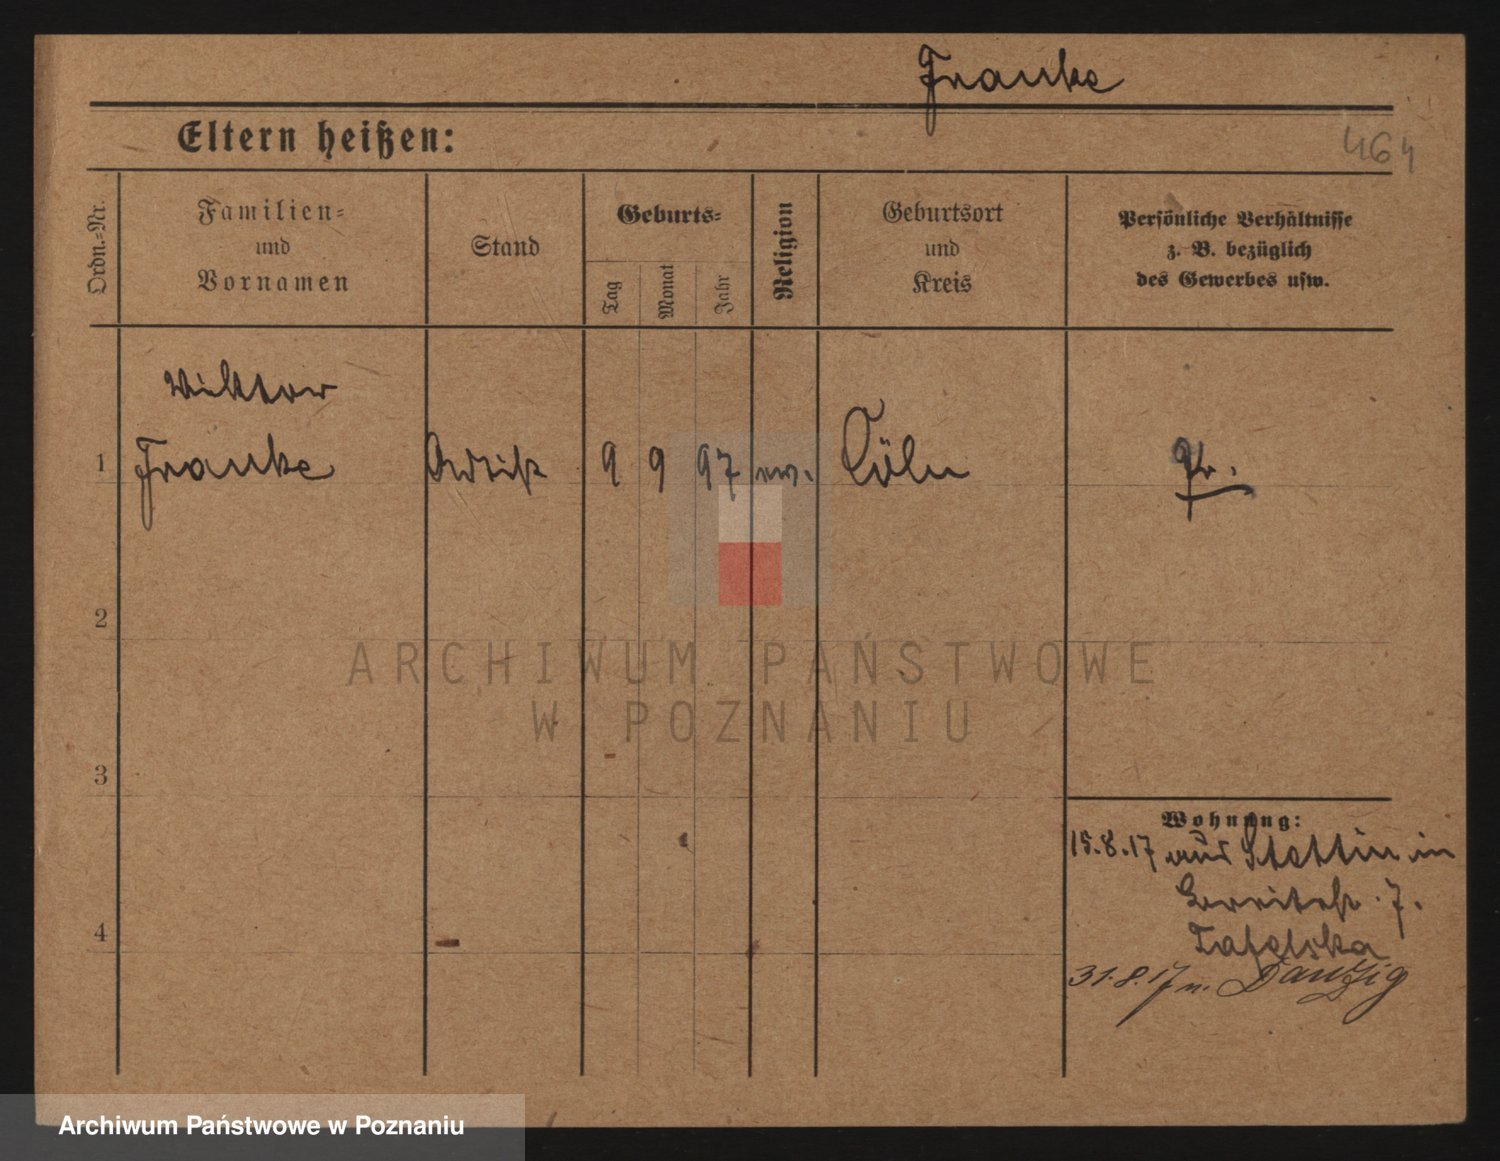 Franke
Eltern heißen:
464
Ordn.-Nr.
Familien-
und
Vornamen
Stand
Geburts-
Tag
Monat
Jahr
Religion
Geburtsort
und
Kreis
Persönliche Verhältnisse
z. B. bezüglich
des Gewerbes usw.
Viktor
1 Franke Artist 9 9 97 ev. Cöln
2
3
4
Wohnung:
15.8.17 aus Stettin in
7.
31.8.17 n. Danzig
ARCHIWUM PAŃSTWOWE
W POZNANIU
Archiwum Państwowe w Poznaniu